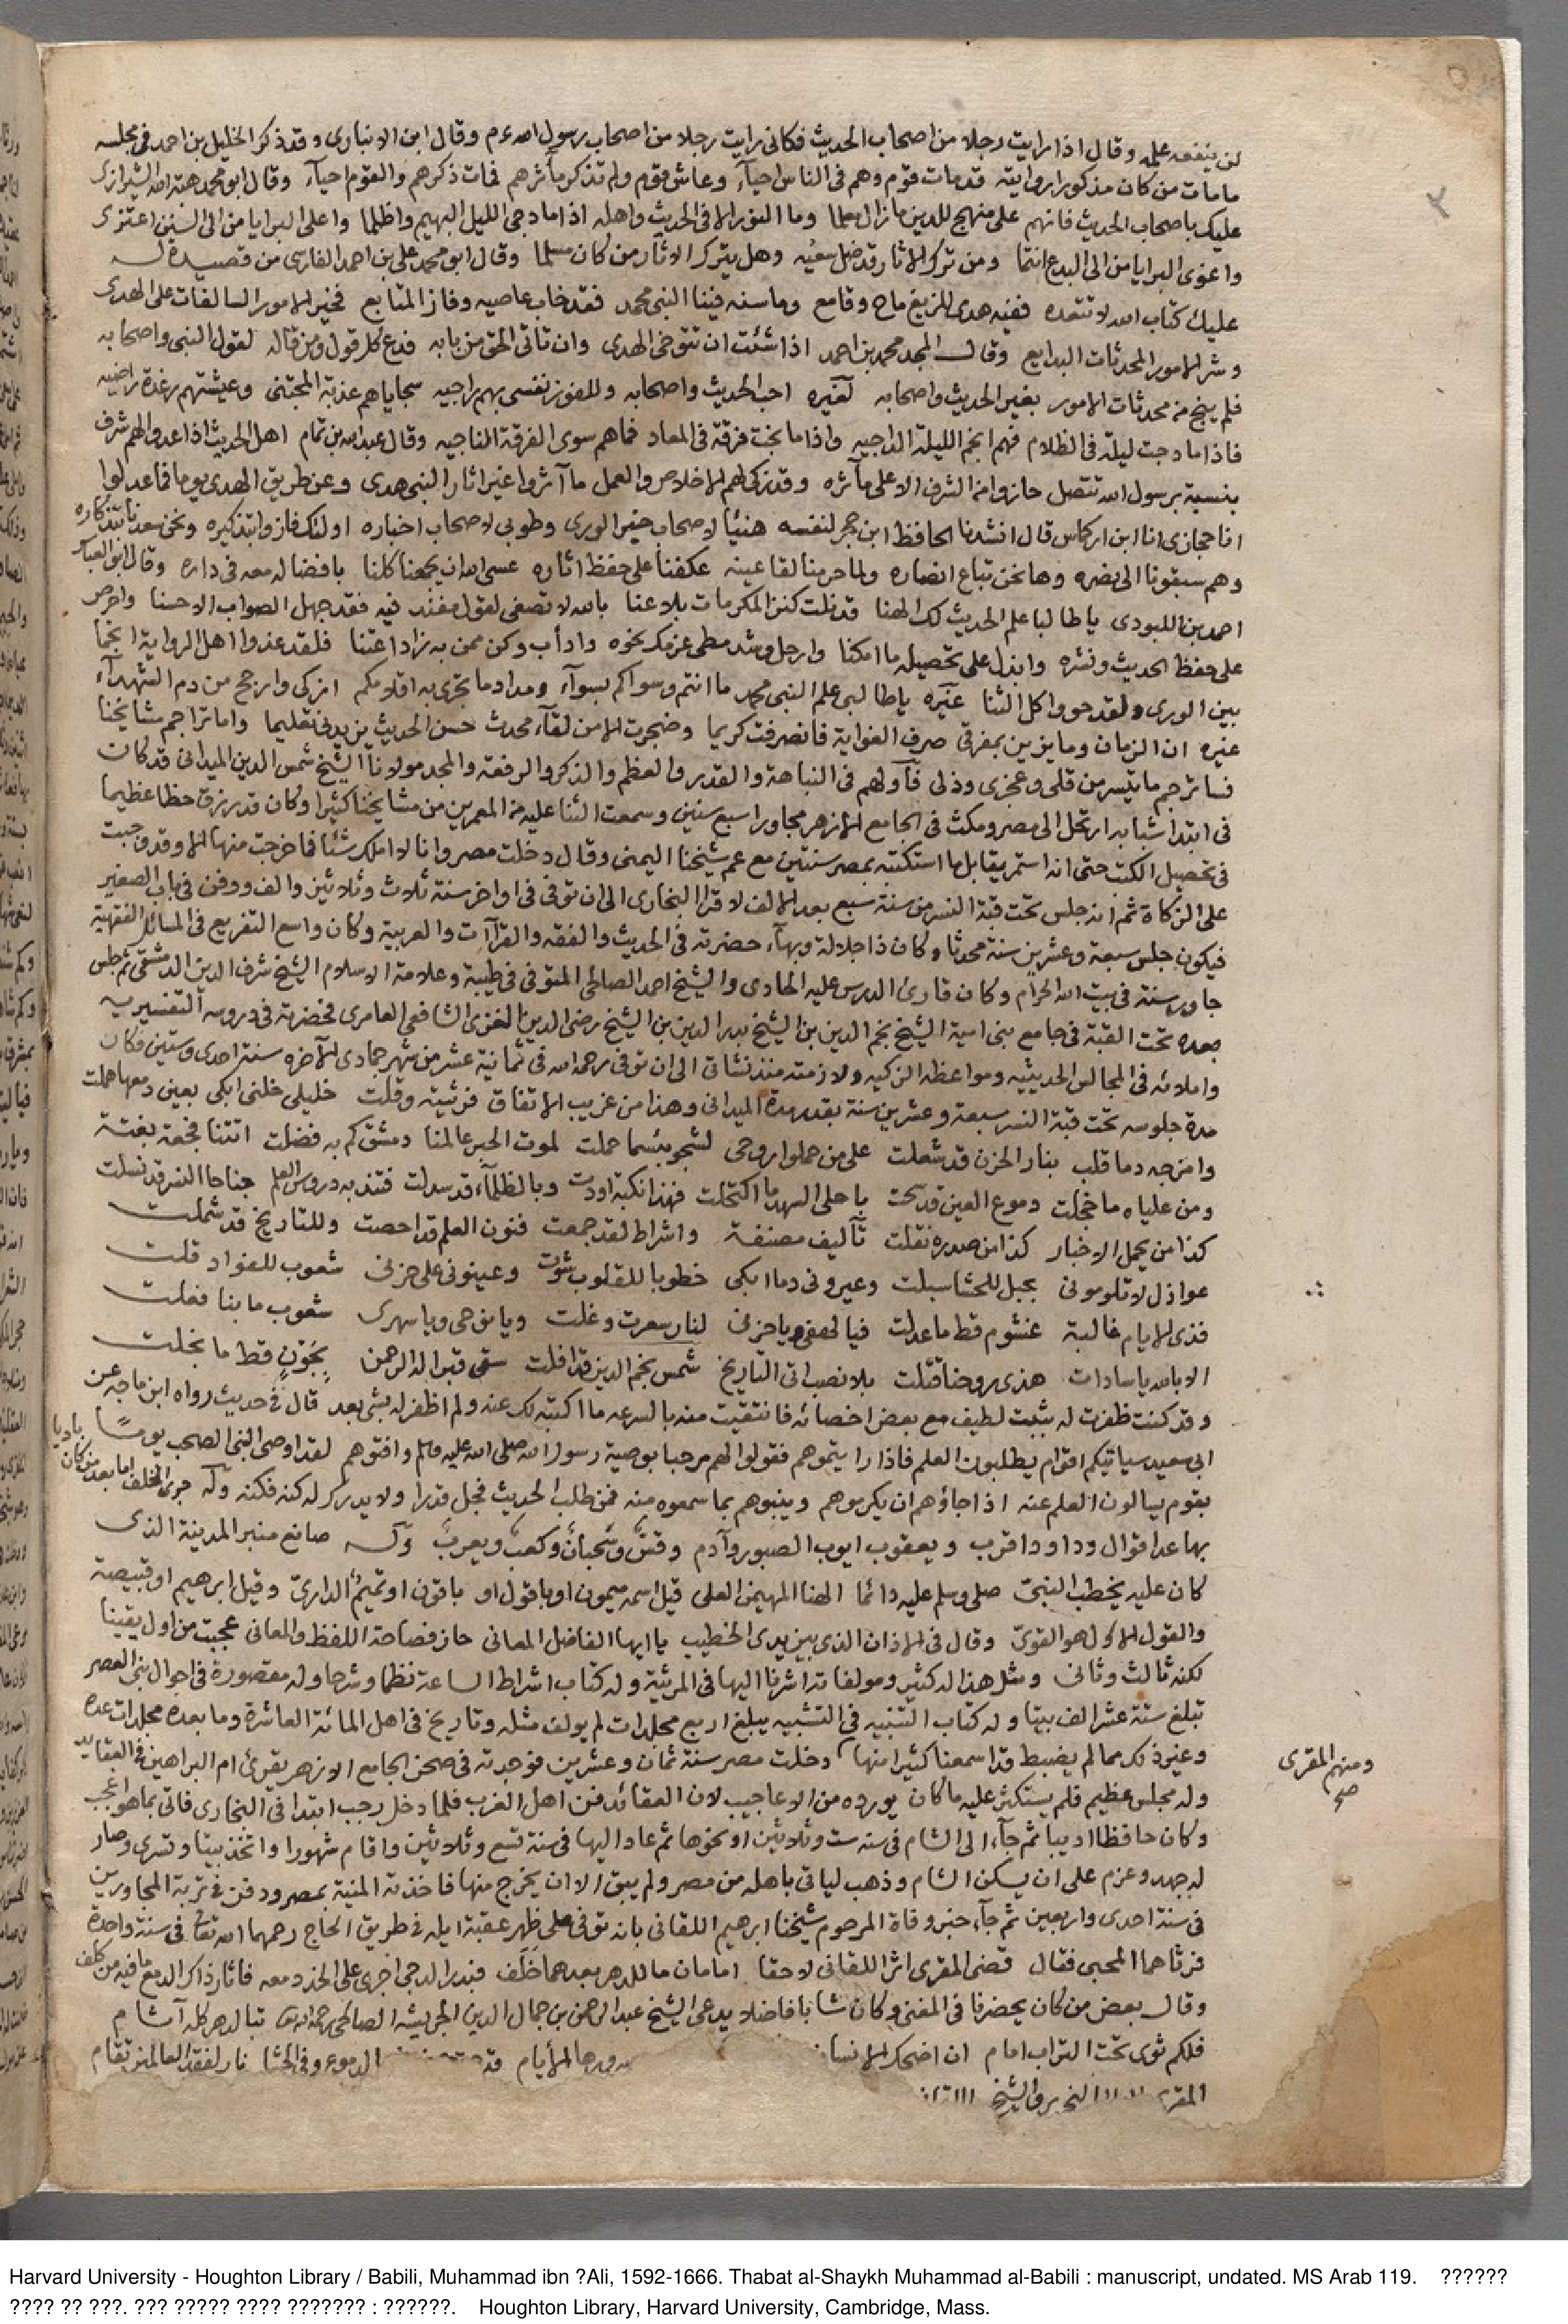 لن ينفعه علمه وقال اذا رايت رجلا من اصحاب الحديث فكاني رايت رجلا من اصحاب رسول الله وقال ابن الانباري وقد ذكر الخليل بن احمد في مجلسه
ما مات من كان مذكورا روايته قد مات قوم وهم في الناس احياء وعاش قوم ولم تذكر مآثرهم فمات ذكرهم والقوم احياء وقال ابو محمد هبة الله الشيرازي
عليك باصحاب الحديث فانهم على منهج للدين ما زال معلما وما النور الا في الحديث واهله اذا ما دجى الليل البهيم واظلما واعلى البرايا من الى السنن اعتزى
واغوى البرايا من الى البدع انتما ومن ترك الاثار قد ضل سعيه وهل يترك الاثار من كان مسلما وقال ابو محمد علي بن احمد الفارسي من قصيدة له
عليك كتاب الله لا تتعده ففيه هدى للزيغ ماح وقامع وما سنه فينا النبي محمد فقد خاب عاصيه وفاز المتابع فخير الامور السالفات على الهدى
وشر الامور المحدثات البدايع وقال المجد محمد بن احمد اذا شئت ان تتوخى الهدى وان تاتي الحق من بابه فدع كل قول ومن قاله لقول النبي واصحابه
فلم ينج من محدثات الامور بغير الحديث واصحابه لغيره احب الحديث واصحابه وللفوز نفسي بهم راجيه سجاياهم عذبة المجتنى وعيشتهم رغدة راضيه
فاذا ما دجت ليلة في الظلام فهم انجم الليلة الداجيه واذا ما نجت فرقة في المعاد فما هم سوى الفرقة الناجيه وقال عبد الله بن تمام اهل الحديث اذا عدوا لهم شرف
بنسبة برسول الله تتصل حازوا من الشرف الاعلى مآثره وقد زكى لهم الاخلاص والعمل ما آثروا غير اثار النبي هدى وعن طريق الهدى يوما فما عدلوا
انا حجازي انا ابن اركماس قال انشدنا الحافظ ابن حجر لنفسه هنيئا لاصحاب خير الورى وطوبى لاصحاب اخباره اولئك فازوا بتذكيره ونحن سعدنا بتذكاره
وهم سبقونا الى نصره وها نحن تباع انصاره ولما حرمنا لقا عينه عكفنا على حفظ اثاره عسى الله ان يجمعنا كلنا بافضاله معه في داره وقال ابو العباس
احمد بن اللبودي يا طالبا علم الحديث لك الهنا قد نلت كنز المكرمات بلا عنا بالله لا تصغى لقول مفند فيه فقد جهل الصواب الاحسنا واحرص
على حفظ الحديث ونشره وابذل على تحصيله ما امكنا وارحل وشد مطي عزمك نحوه وادأب وكن ممن به زاد اعتنا فلقد غدوا اهل الرواية انجما
بين الورى ولقد حووا كل الثنا غيره يا طالبي علم النبي محمد ما انتم وسواكم بسواء ومداد ما تجري به اقلامكم ازكى وارجح من دم الشهداء
غيره ان الزمان وما يزين بمفرقي صرف الغواية فانصرفت كريما وضجرت الا من لقاء محدث حسن الحديث يزيدني تعليما واما تراجم مشايخنا
فساترجم ما يتيسر من قلمي وعجزي وذلي فأولهم في النباهة والقدر والعظم والذكر والرفعة والمجد مولانا الشيخ شمس الدين الميداني قد كان
في ابتدا شبابه ارتحل الى مصر ومكث في الجامع الازهر مجاورا سبع سنين وسمعت الثنا عليه من المعمرين من مشايخنا كثيرا وكان قد رزق حظا عظيما
في تحصيل الكتب حتى انه استمر يقابل ما استكتبه بمصر سنتين مع عم شيخنا اليمني وقال دخلت مصر وانا لا املك شئا فما خرجت منها الا وقد وجبت
على الزكاة ثم انه جلس تحت قبة النسر من سنة سبع بعد الالف لاقرا البخاري الى ان توفي في اواخر سنة ثلاث وثلاثين والف ودفن في باب الصغير
فيكون جلس سبعة وعشرين سنة محدثا وكان ذا جلالة وبهاء حضرته في الحديث والفقه والقراآت والعربية وكان واسع التفريع في المسائل الفقهية
جاور سنة في بيت الله الحرام وكان قارئ الدرس عليه الهادي والشيخ احمد الصالحي المتوفى في طيبة وعلامة الاسلام الشيخ شرف الدين الدمشقي ثم جلس
بعده تحت القبة في جامع بني امية الشيخ نجم الدين بن الشيخ بدر الدين بن الشيخ رضي الدين الغزي الشافعي العامري فحضرته في دروسه التفسيريه
واملائه في المجالس الحديثيه ومواعظه الزكيه ولازمته منذ نشاتي الى ان توفي رحمه الله في ثمانية عشر من شهر جمادى الآخره سنة احدى وستين فكان
مدة جلوسه تحت قبة النسر سبعة وعشرين سنة بقدر مدة الميداني وهذا من غريب الاتفاق فرثيته وقلت خليلي خلني ابكي بعيني دمعها هملت
وامزجه دما قلب بنار الحزن قد شعلت على من حملوا روحي لشجو بئسما حملت لموت الحبر عالمنا دمشق كم به فضلت اتتنا فجعة بغتة
ومن علياه ما خجلت دموع العين قد سحت يا حلى السهد ما اكتحلت فهذا نكبة اودت وبالظلماء قد سدلت فتندبه دروس العلم جناحا النسر قد نسلت
كذا من يحمل الاخبار كذا من صدره نقلت تآليف مصنفة واشراط لقد جمعت فنون العلم قد احصت وللتاريخ قد شملت
عواذل لا تلوموني بجبل للحشا سبلت وعيروني دما ابكي خطوبا للقلوب شوت وعينوني على حزني شعوب للفواد قلت
فذي الايام غالبة غشوم قط ما عدلت فيا لهفي ويا حزني لنار سعرت وغلت ويا نوحي ويا سهرى شعوب ما بنا فعلت
الا بالله يا سادات هذى روحنا قتلت بلا نصب اتى التاريخ شمس نجم الدين قد افلت سقى قبرا له الرحمن بجون قط ما بخلت
وقد كنت ظفرت له بثبت لطيف مع بعض اخصائه فانتقيت منه بالسرعه ما اكتبه لك عنه ولم اظفر له بشئ بعد قال في حديث رواه ابن ماجه عن
ابي سعيد سياتيكم اقوام يطلبون العلم فاذا رايتموهم فقولوا لهم مرحبا بوصية رسول الله صلى الله عليه وسلم وافتوهم لقد اوصى النبي الصحب يوما
بقوم يسالون العلم عنه اذا جاؤهم ان يكرموهم وينبوهم بما سمعوه منه فمن طلب الحديث فجل قدرا ولا يدرك له كنه فكنه وله جرى الخلف اما بعد من كان باديا
بها عد اقوال وداود اقرب ويعقوب ايوب الصبور وآدم وقس وسحبان وكعب ويعرب وله صانع منبر المدينة الذي
كان عليه يخطب النبي صلى وسلم عليه دائما الهنا المهيمن العلي قيل اسمه ميمون او باقول او باقون او تميم الداري وقيل ابرهيم او قبيصة
والقول الاول هو القوي وقال في الاذان الذي بين يدى الخطيب يا ايها الفاضل المعاني حاز فصاحة اللفظ والمعاني عجبت من اول يقينا
لكنه ثالث وثاني ومثل هذا له كثير ومولفاته اشرنا اليها في المرثية وله كتاب اشراط الساعة نظما وشرحا وله مقصورة في احوال بني العصر
تبلغ ستة عشر الف بيتا وله كتاب التنبيه في التشبيه يبلغ اربع مجلدات لم يولف مثله وتاريخ في اهل المائة العاشرة وما بعده مجلدات عده
وغير ذلك مما لم يضبط قد اسمعنا كثيرا منها دخلت مصر سنة ثمان وعشرين فوجدته في صحن الجامع الازهر يقرئ ام البراهين في العقايد
ومنهم المقرى
صح
وله مجلس عظيم فلم يستكثر عليه ما كان يورده من الاعاجيب لان العقائد فن اهل الغرب فلما دخل رجب ابتدا في البخاري فاتى بما هو اعجب
وكان حافظا اديبا ثم جاء الى الشام في سنه ست وثلاثين او نحوها ثم عاد اليها في سنة تسع وثلاثين واقام شهورا واتخذ بيتا وتسرى وصار
له جهد وعزم على ان يسكن الشام وذهب لياتي باهله من مصر ولم يبق الا ان يخرج منها فاخذته المنية بمصر ودفن في تربة المجاورين
في سنة احدى واربعين ثم جاء خبر وفاة المرحوم شيخنا ابرهيم اللقاني بانه توفي على ظهر عقبة ايله في طريق الحاج رحمهما الله تعالى في سنة واحدة
فرثاهما المحبي فقال قضى المقرى اثرا للقاني لاحقا امامان ما للدهر بعدهما خلف فبدر الدجى اجرى على الخد دمعه فاثار ذاك الدمع ما فيه من كلف
وقال بعض من كان يحضرنا في المغنى وكان شابا فاضلا يدعى الشيخ عبد الرحمن بن جمال الدين الصالحي تبا لدهر كله آشام
فلكم ثوى تحت التراب امام ان اضحك الانسا الايام الدموع وفي الحشا نار لفقد العالمين تقام
والشيخ